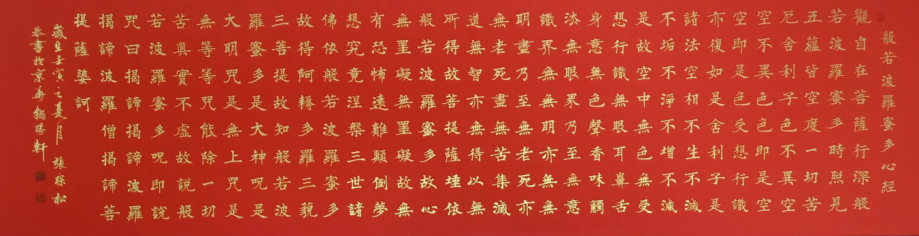 般若波羅蜜多心經
觀自在菩薩行深般
若波羅蜜多時照見
五蘊皆空度一切苦
厄舍利子色不異空
空不異色色即是空
空即是色受想行識
亦復如是舍利子是
諸法空相不生不滅
不垢不淨不增不減
是故空中無色無受
想行識無眼耳鼻舌
身意無色聲香味觸
法無眼界乃至無意
識界無無明亦無無
明盡乃至無老死亦
無老死盡無苦集滅
道無智亦無得以無
所得故菩提薩埵依
般若波羅蜜多故心
無罣礙無罣礙故無
有恐怖遠離顛倒夢
想究竟涅槃三世諸
佛依般若波羅蜜多
故得阿耨多羅三藐
三菩提故知般若波
羅蜜多是大神咒是
大明咒是無上咒是
無等等咒能除一切
苦真實不虛故說般
若波羅蜜多咒即說
咒曰揭諦揭諦波羅
揭諦波羅僧揭諦菩
提薩婆訶
歲在壬寅之夏月張琼松
恭書於京華軒